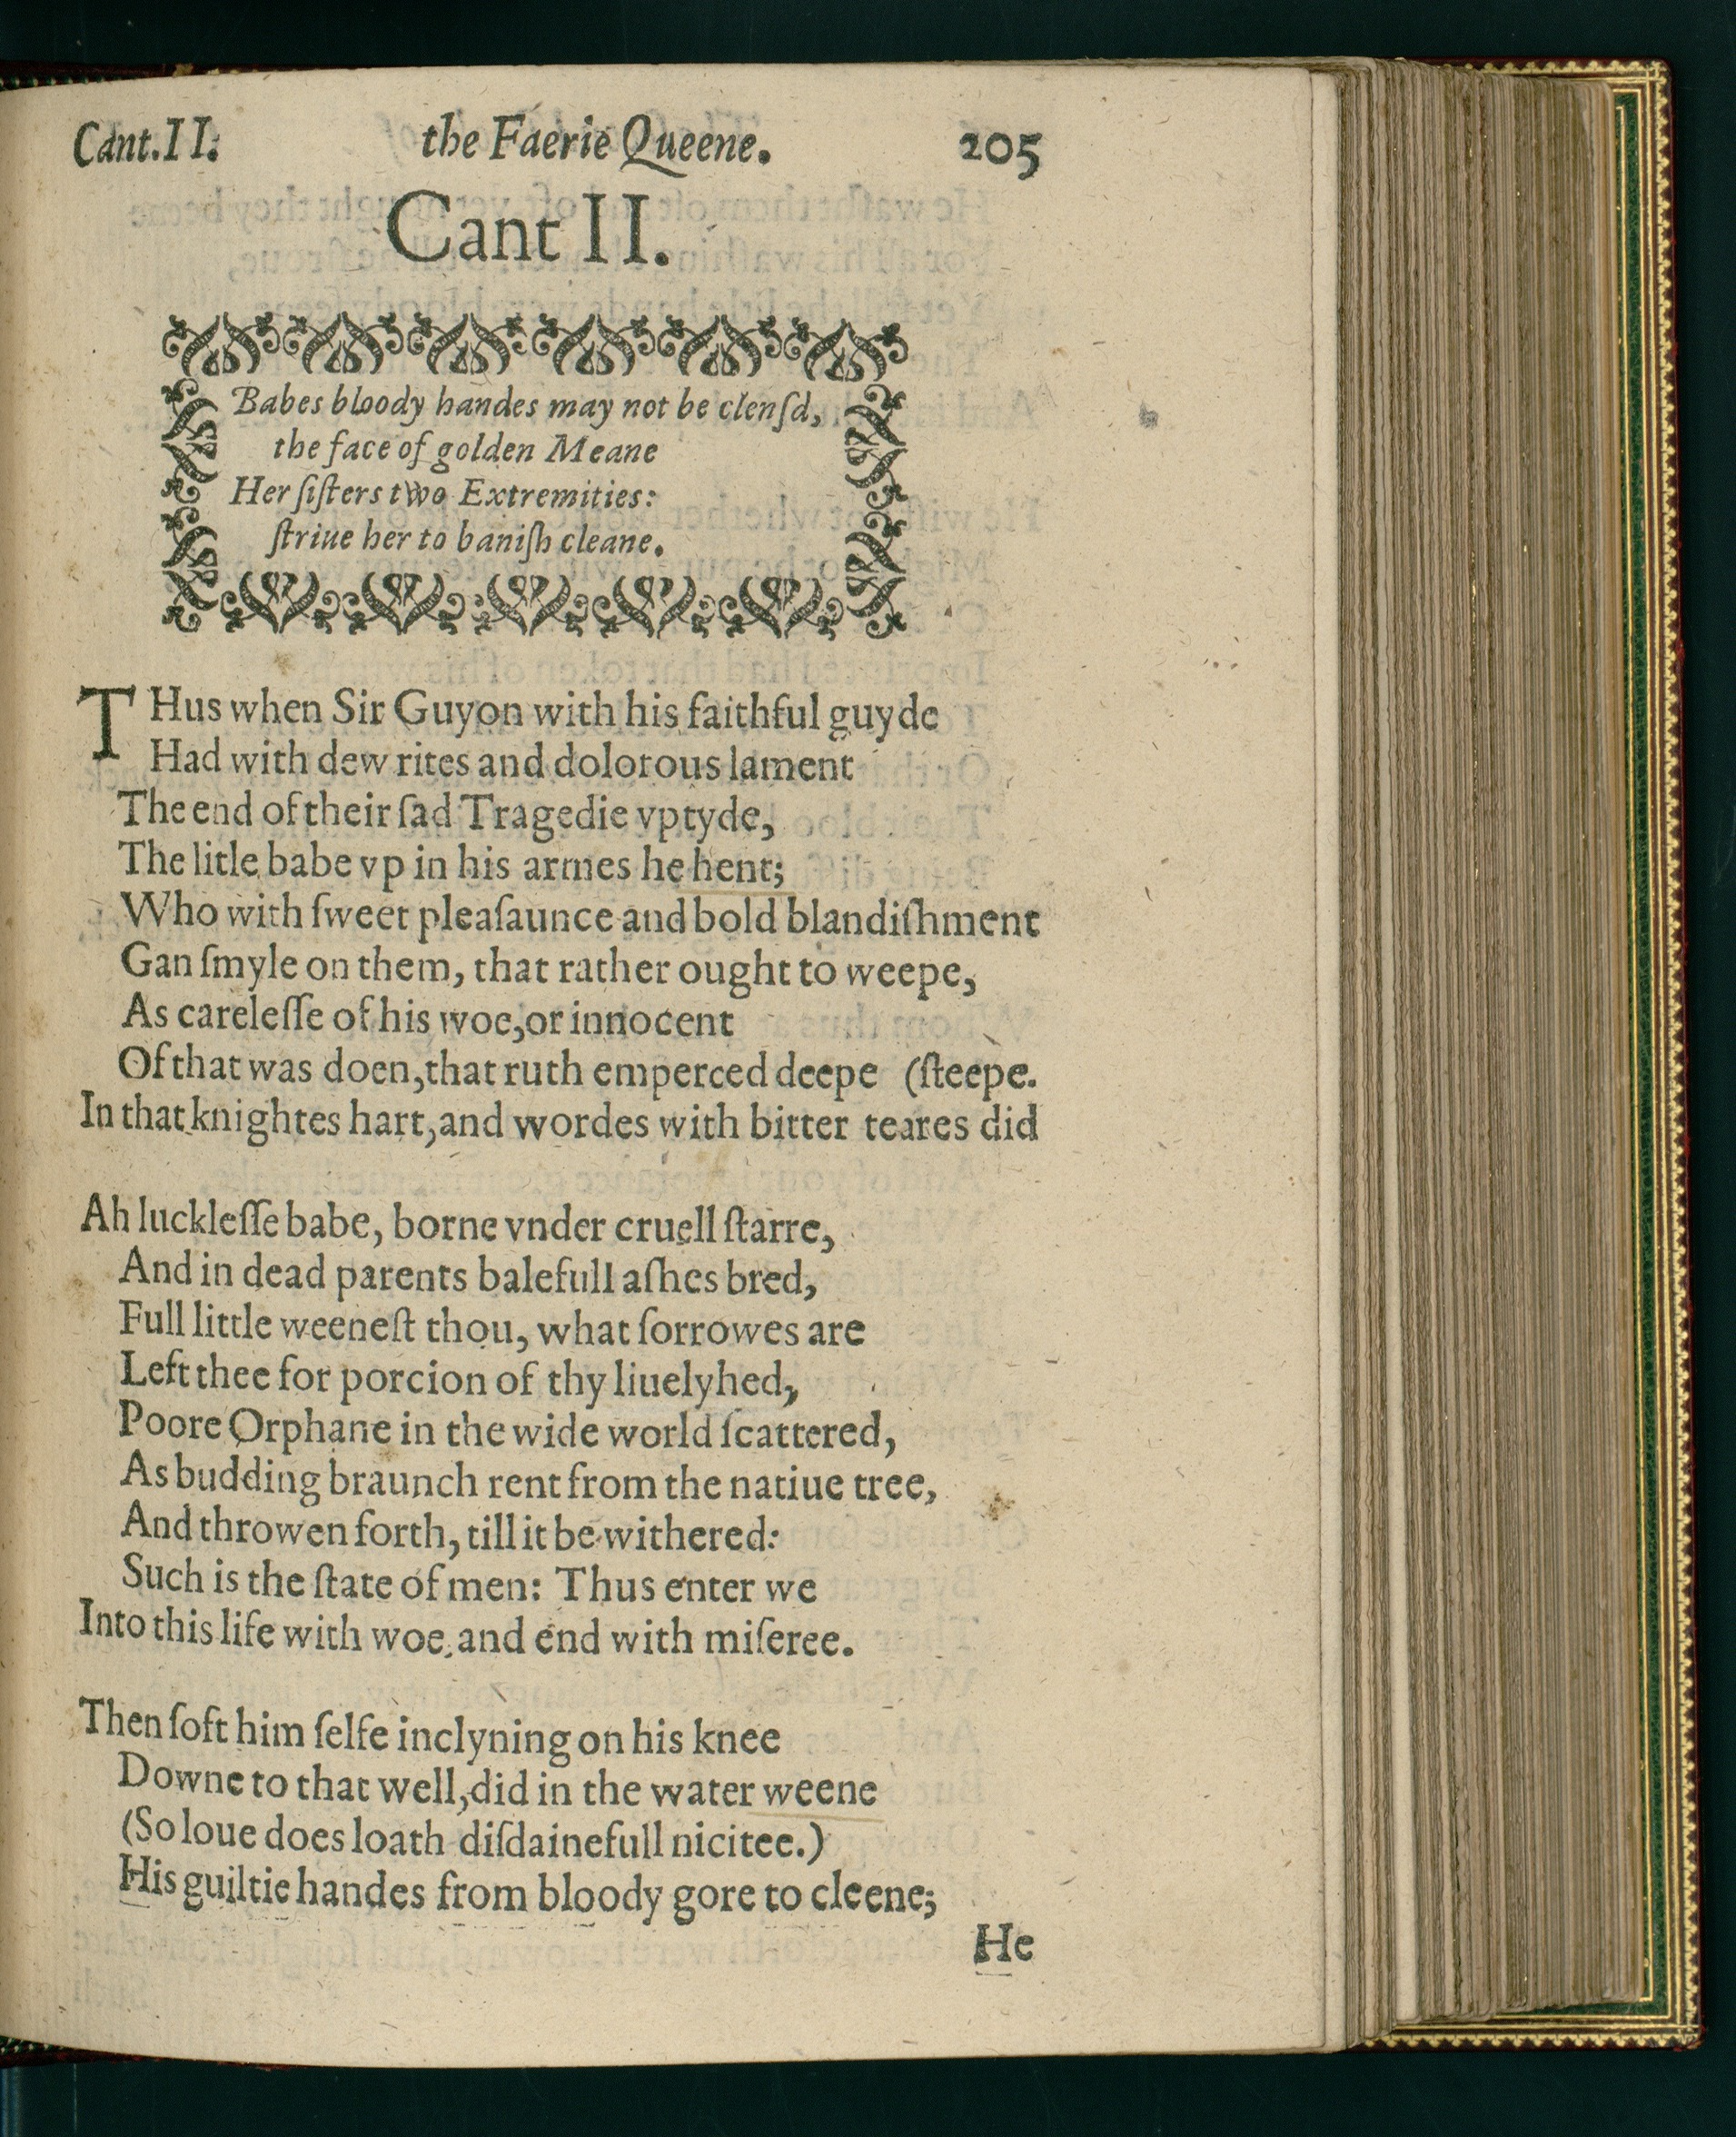 Cant.II. the Faerie Queene. 205
Cant II.
Babes bloody handes may not be clenſd,
the face of golden Meane
Her ſiſters two Extremities:
ſtriue her to baniſh cleane.
THus when Sir Guyon with his faithful guyde
Had with dew rites and dolorous lament
The end of their ſad Tragedie vptyde,
The litle babe vp in his armes he hent;
Who with ſweet pleaſaunce and bold blandiſhment
Gan ſmyle on them, that rather ought to weepe,
As careleſſe of his woe, or innocent
Of that was doen, that ruth emperced deepe (ſteepe.
In that knightes hart, and wordes with bitter teares did
Ah luckleſſe babe, borne vnder cruell ſtarre,
And in dead parents balefull aſhes bred,
Full little weeneſt thou, what ſorrowes are
Left thee for porcion of thy liuelyhed,
Poore Orphane in the wide world ſcattered,
As budding braunch rent from the natiue tree,
And throwen forth, till it be withered:
Such is the ſtate of men: Thus enter we
Into this life with woe, and end with miſeree.
Then ſoft him ſelfe inclyning on his knee
Downe to that well, did in the water weene
(So loue does loath diſdainefull nicitee.)
His guiltie handes from bloody gore to cleene;
He